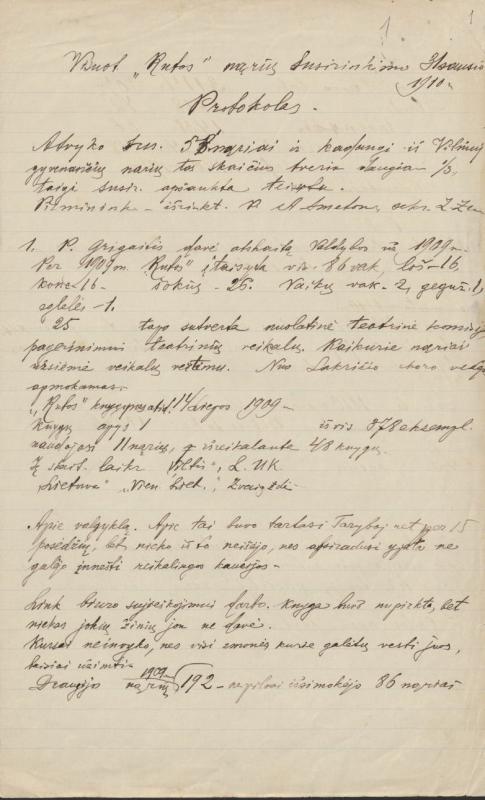 1 1
Visuot. „Rutos" narių Susirinkimo Sausio
1910 m.
Protokolas.
Atvyko sus. nariai ir kadangi iš Vilniuj
gyvenančių narių tas skaičius tveria daugiau 1/3,
taigi susir. apšaukta teisėtu.
Pirminink - išrinkt. P. A Smetona, sekr. Z Žem
1. P. Grigaitis davė atskaitą Valdybos už 1909 m.
Per 1909 m. „Rutos" įtaisyta vis. 86 vak, loš-16,
konc. 16 - šokių - 25. Vaikų vak. 2, geguž. 1,
eglelės - 1.
25 tapo sutverta nuolatinė teatrinė komisij
pagerinimui teatrinių reikalų. Kaikurie nariai
užsiėmė veikalų vertimu. Nuo Lakričio
apmokamas.
„Rutos" 14 1909 -
Knygų apys 1 išvis 878 eksempl.
naudojasi 11 narių, išreikalauta 48 knygų.
Iš skait. laikr „Viltis", L. UK
„Lietuva" „Vien. Liet.", Žvaigždė
Apie valgyklą. Apie tai buvo tartasi Taryboj net per 15
posėdžių, bet nieko iš to neišėjo, nes ne
galėjo įnešti reikalingos kaucijos -
Link biuro sujieškojimui darbo. Knyga buvo nupirkta, bet
niekas jokių žinių jon ne davė.
Kursai neinvyko, nes visi žmonės kurie galėtų vesti juos,
baisiai užimti
Draugijo 1909 m. narių 192 - nepilnai užsimokėjo 86 nariai